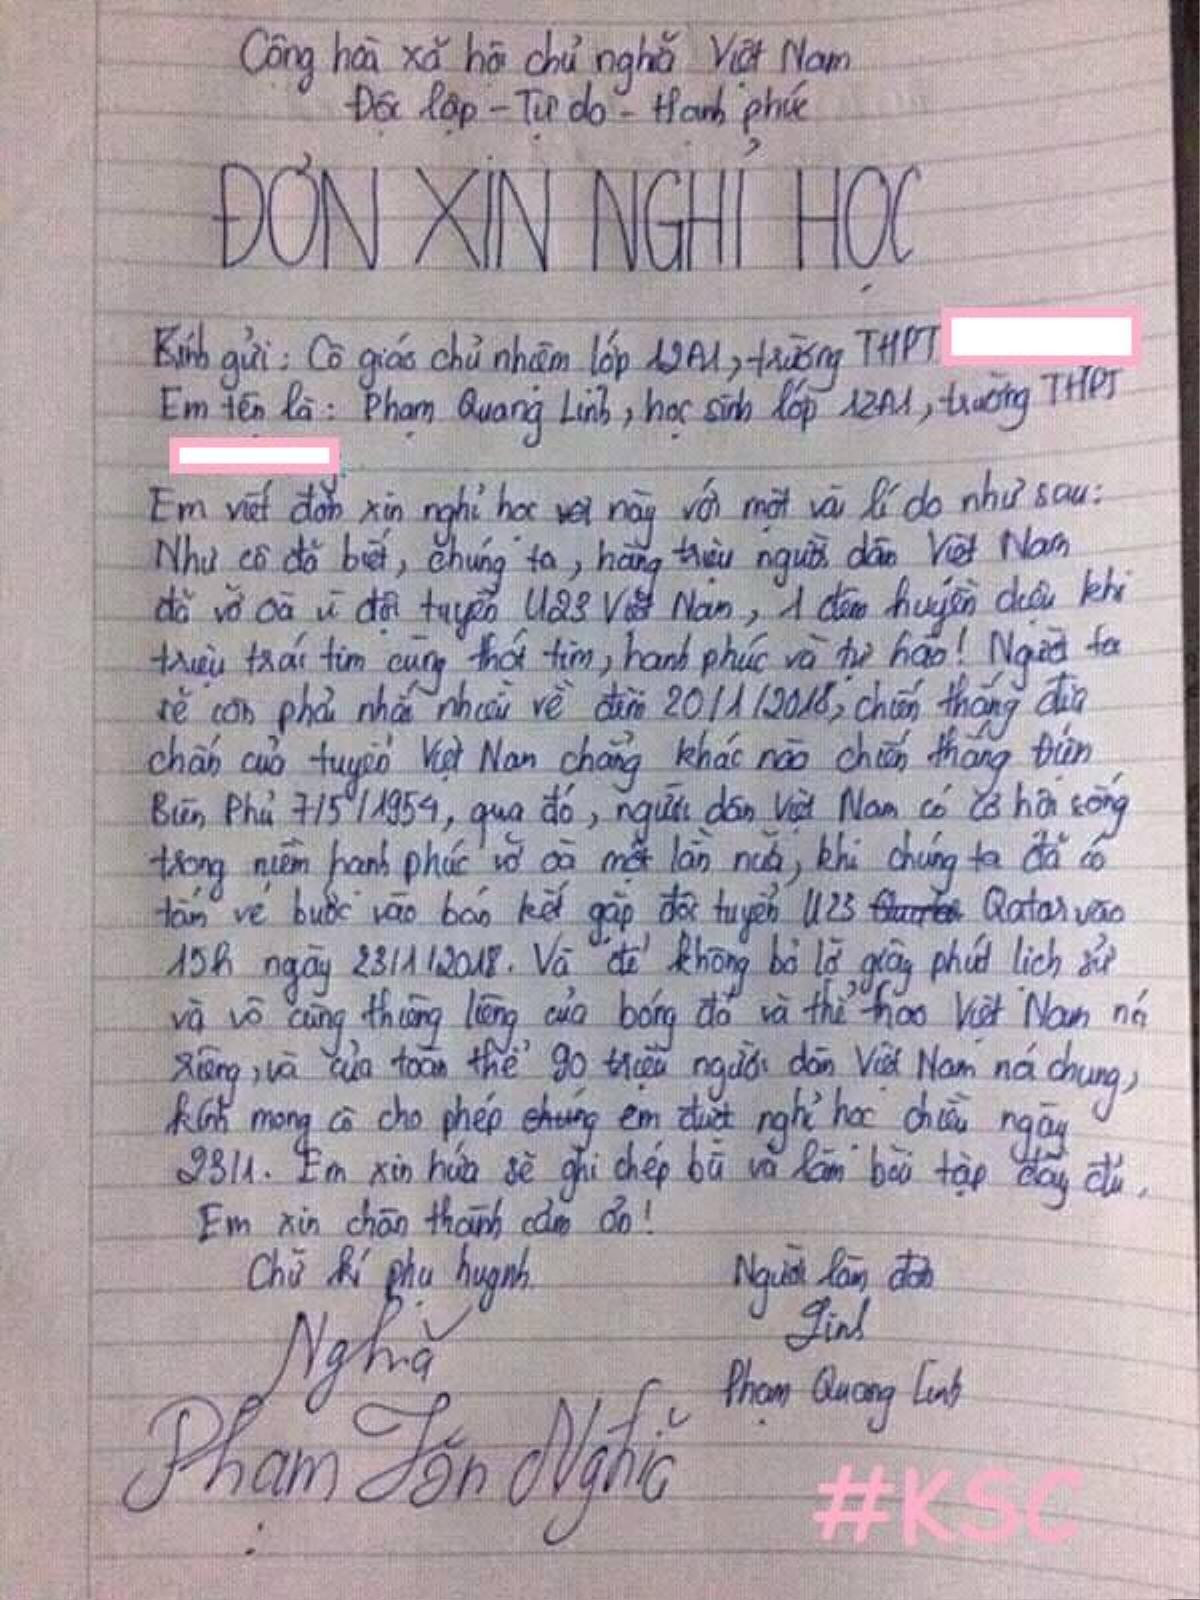 Cộng hoà xã hội chủ nghĩa Việt Nam
Độc lập - Tự do - Hạnh phúc
ĐƠN XIN NGHỈ HỌC
Kính gửi: Cô giáo chủ nhiệm lớp 12A1, trường THPT
Em tên là: Phạm Quang Linh, học sinh lớp 12A1, trường THPT
Em viết đơn xin nghỉ học này với một vài lí do như sau:
Như cô đã biết, chúng ta, hàng triệu người dân Việt Nam
đã vỡ oà vì đội tuyển U23 Việt Nam, 1 đêm huyền diệu khi
triệu trái tim cùng thót tim, hạnh phúc và tự hào! Người ta
sẽ còn phải nhắc nhiều về đêm 20/1/2018, chiến thắng
chấn của tuyển Việt Nam chẳng khác nào chiến thắng Điện
Biên Phủ 7/5/1954, qua đó, người dân Việt Nam có cơ hội sống
trong niềm hạnh phúc vỡ oà một lần nữa, khi chúng ta đã có
tấm vé bước vào bán kết gặp đội tuyển U23 Qatar vào
15h ngày 23/1/2018. Và để không bỏ lỡ giây phút lịch sử
và vô cùng thiêng liêng của bóng đá và thể thao Việt Nam nói
riêng, và của toàn thể 90 triệu người dân Việt Nam nói chung,
kính mong cô cho phép chúng em được nghỉ học chiều ngày
23/1. Em xin hứa sẽ ghi chép bù và làm bài tập đầy đủ.
Em xin chân thành cảm ơn!
Chữ kí phụ huynh Người làm đơn
Nghĩa Linh
Phạm Quang Linh
Phạm Tấn Nghĩa
#KSC